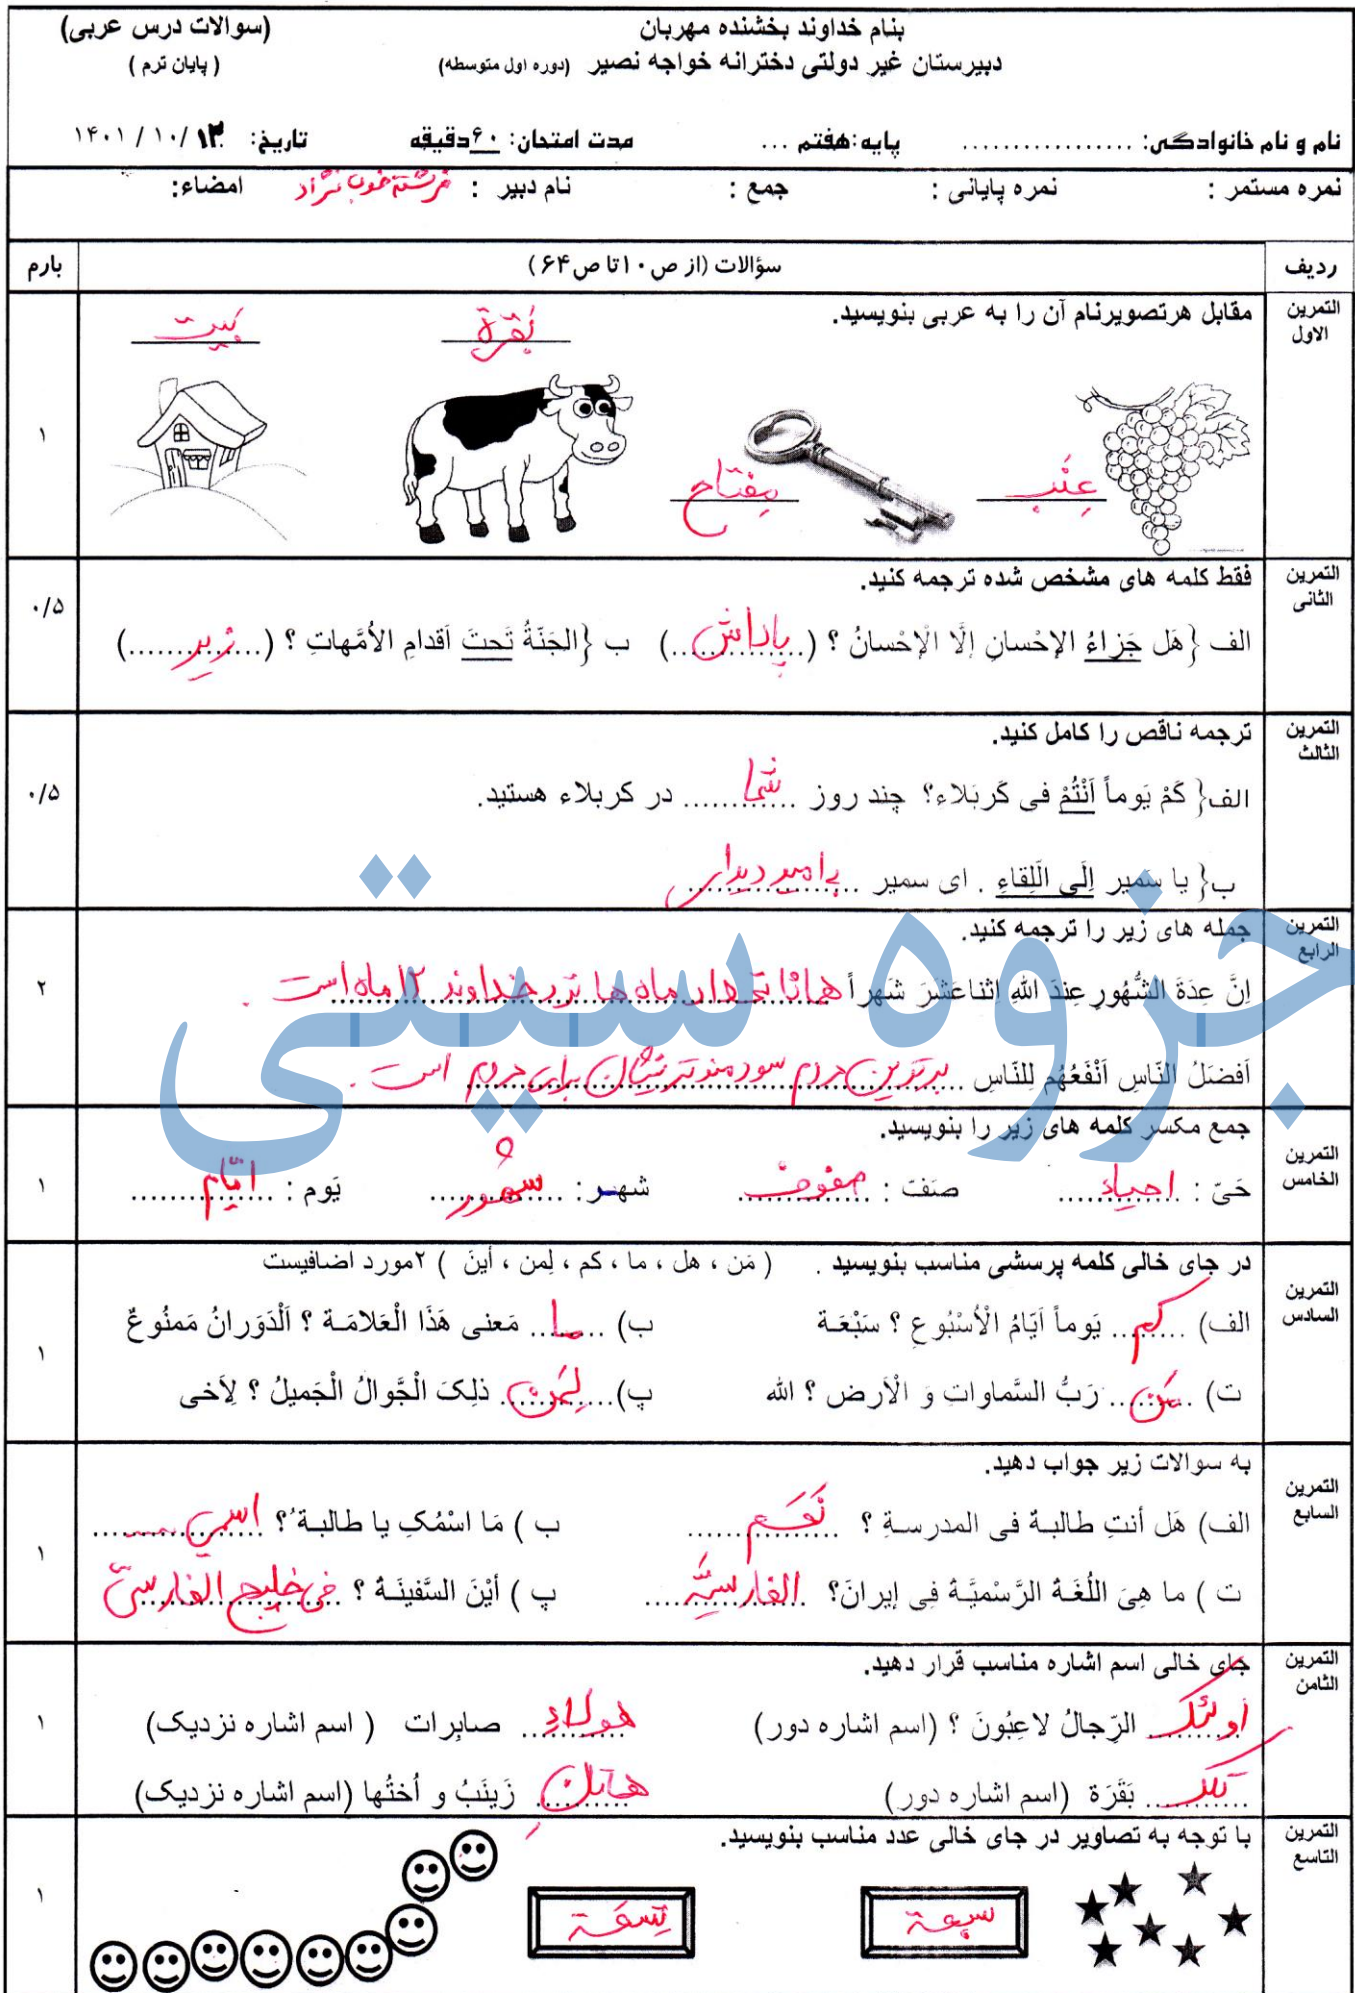 بنام خداوند بخشنده مهربان
(سوالات درس عربی)
دبیرستان غیر دولتی دخترانه خواجه نصیر (دوره اول متوسطه)
( پایان ترم )
نام و نام خانوادگی: ................. پایه:هفتم ... مدت امتحان: ۶۰دقیقه تاریخ: ۱۳ /۱۰ / ۱۴۰۱
نمره مستمر : نمره پایانی : جمع : نام دبیر : فرشته خوب نژاد امضاء:
ردیف سؤالات (از ص۱۰تا ص۶۴) بارم
التمرین الاول
مقابل هرتصویرنام آن را به عربی بنویسید.
۱
عِنَب مِفتاح بَقَرَة بَیت
التمرین الثانی
فقط کلمه های مشخص شده ترجمه کنید.
۰/۵
الف {هَل جَزاءُ الإحْسانِ إلَّا الْإحْسانُ ؟ (پاداش) ب {الجَنّةُ تَحتَ اَقدامِ الاُمَّهاتِ ؟ (زیر)
التمرین الثالث
ترجمه ناقص را کامل کنید.
۰/۵
الف{ کَمْ یَوماً اَنْتُمْ فی کَربَلاء؟ چند روز شما در کربلاء هستید.
ب{ یا سَمیر اِلَی اَلِلقاءِ . ای سمیر به امید دیدار
التمرین الرابع
جمله های زیر را ترجمه کنید.
۲
اِنَّ عِدَةَ الشُّهُورِ عِندَ اللهِ اِثناعَشَرَ شَهراً همانا تعداد ماه ها نزد خداوند ۱۲ ماه است .
اَفضَلُ النّاسِ اَنْفَعُهُم لِلنّاسِ برترین مردم سودمندترینشان برای مردم است .
التمرین الخامس
جمع مکسر کلمه های زیر را بنویسید.
۱
حَیّ : احیاء صَف : صفوف شهر: شُهُور یَوم : ایّام
التمرین السادس
در جای خالی کلمه پرسشی مناسب بنویسید . ( مَن ، هل ، ما ، کم ، لِمن ، أینَ ) ۲مورد اضافیست
۱
الف) کم یَوماً اَیّامُ الْاُسْبُوعِ ؟ سَبْعَة ب) ما مَعنی هَذَا الْعَلامَة ؟ اَلْدَوَرانُ مَمنُوعٌ
ت) مَن رَبُّ السَّماواتِ وَ الْاَرض ؟ الله پ) لِمَن ذلِکَ الْجَّوالُ الْجَمیلُ ؟ لِاَخی
التمرین السابع
به سوالات زیر جواب دهید.
۱
الف) هَل أنتِ طالبةٌ فی المدرسةِ ؟ نَعَم ب ) مَا اسْمُکِ یا طالبةُ؟ اسمی ...
ت ) ما هِیَ اللُغَةُ الرَّسْمیَّةُ فِی إیرانَ؟ الفارسیَّه پ ) أیْنَ السَّفینَةُ ؟ فی خلیج الفارسیّ
التمرین الثامن
جای خالی اسم اشاره مناسب قرار دهید.
۱
أولئک الرِّجالُ لاعِبُونَ ؟ (اسم اشاره دور) هولاءِ صابِرات ( اسم اشاره نزدیک)
تلک بَقَرَة (اسم اشاره دور) هاتانِ زَینَبُ و اُختُها (اسم اشاره نزدیک)
التمرین التاسع
با توجه به تصاویر در جای خالی عدد مناسب بنویسید.
۱
سبعة تِسعَة
جزوه سیتی